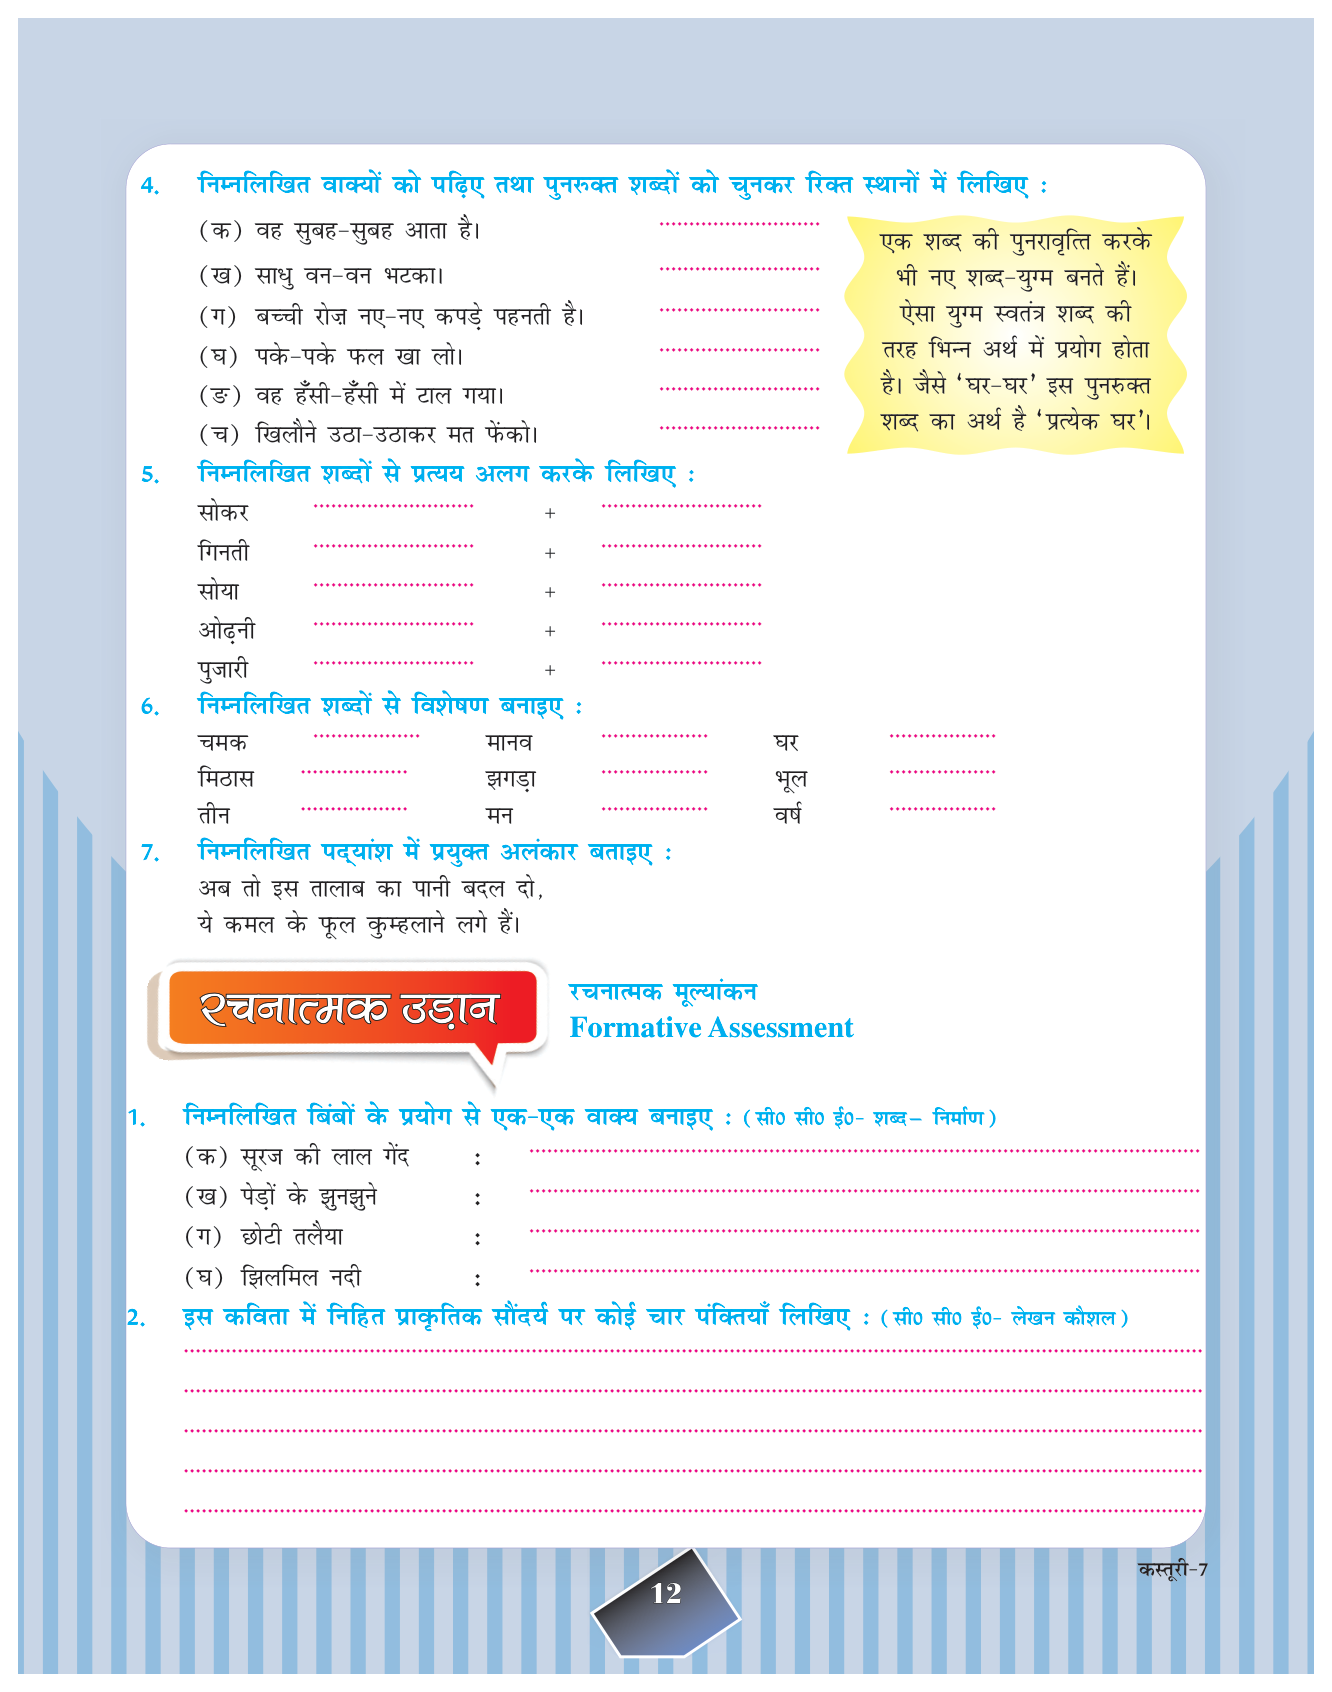 4. निम्नलिखित वाक्यों को पढ़िए तथा पुनरुक्त शब्दों को चुनकर रिक्त स्थानों में लिखिए :
(क) वह सुबह-सुबह आता है।
(ख) साधु वन-वन भटका।
(ग) बच्ची रोज़ नए-नए कपड़े पहनती है।
(घ) पके-पके फल खा लो।
(ङ) वह हँसी-हँसी में टाल गया।
(च) खिलौने उठा-उठाकर मत फेंको।
एक शब्द की पुनरावृत्ति करके
भी नए शब्द-युग्म बनते हैं।
ऐसा युग्म स्वतंत्र शब्द की
तरह भिन्न अर्थ में प्रयोग होता
है। जैसे ‘घर-घर’ इस पुनरुक्त
शब्द का अर्थ है ‘प्रत्येक घर’।
5. निम्नलिखित शब्दों से प्रत्यय अलग करके लिखिए :
सोकर +
गिनती +
सोया +
ओढ़नी +
पुजारी +
6. निम्नलिखित शब्दों से विशेषण बनाइए :
चमक मानव घर
मिठास झगड़ा भूल
तीन मन वर्ष
7. निम्नलिखित पद्‌यांश में प्रयुक्त अलंकार बताइए :
अब तो इस तालाब का पानी बदल दो,
ये कमल के फूल कुम्हलाने लगे हैं।
रचनात्मक उड़ान
रचनात्मक मूल्यांकन
Formative Assessment
1. निम्नलिखित बिंबों के प्रयोग से एक-एक वाक्य बनाइए : (सी0 सी0 ई0- शब्द– निर्माण)
(क) सूरज की लाल गेंद :
(ख) पेड़ों के झुनझुने :
(ग) छोटी तलैया :
(घ) झिलमिल नदी :
2. इस कविता में निहित प्राकृतिक सौंदर्य पर कोई चार पंक्तियाँ लिखिए : (सी0 सी0 ई0- लेखन कौशल)
12
कस्तूरी-7